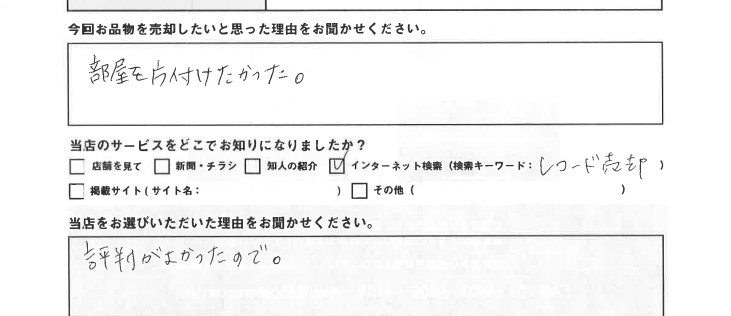 今回お品物を売却したいと思った理由をお聞かせください。
部屋を片付けたかった。
当店のサービスをどこでお知りになりましたか？
□ 店舗を見て □ 新聞・チラシ □ 知人の紹介 ☑ インターネット検索（検索キーワード：レコード売却）
□ 掲載サイト(サイト名：　　　　) □ その他（　　　　）
当店をお選びいただいた理由をお聞かせください。
評判がよかったので。